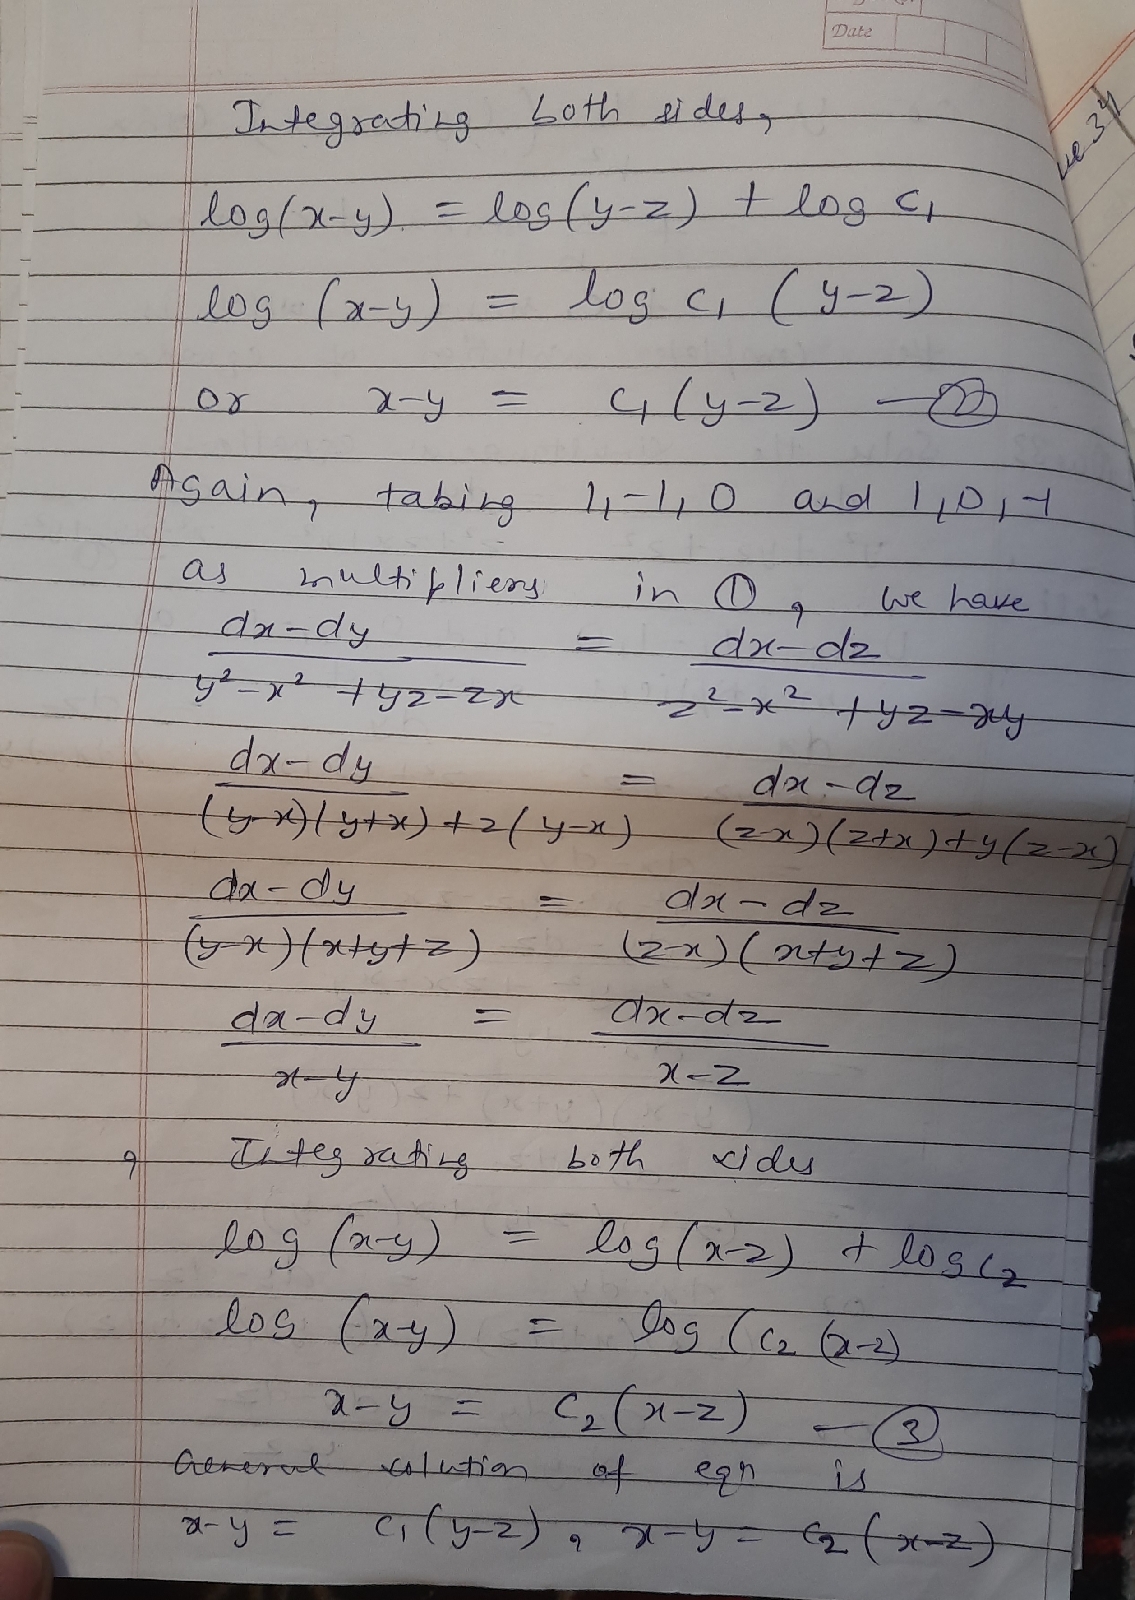 Date
Integrating both sides,
log(x-y) = log(y-z) + log c₁
log (x-y) = log c₁ (y-z)
or x-y = c₁ (y-z) — ②
Again, taking 1,-1,0 and 1,0,-1
as multipliers in ①, we have
dx-dy / y²-x²+yz-zx = dx-dz / z²-x²+yz-xy
dx-dy / (y-x)(y+x)+z(y-x) = dx-dz / (z-x)(z+x)+y(z-x)
dx-dy / (y-x)(x+y+z) = dx-dz / (z-x)(x+y+z)
dx-dy / x-y = dx-dz / x-z
, Integrating both sides
log (x-y) = log(x-z) + log c₂
log (x-y) = log (c₂ (x-z)
x-y = c₂(x-z) — ③
General solution of eqn is
x-y = c₁(y-z), x-y = c₂(x-z)